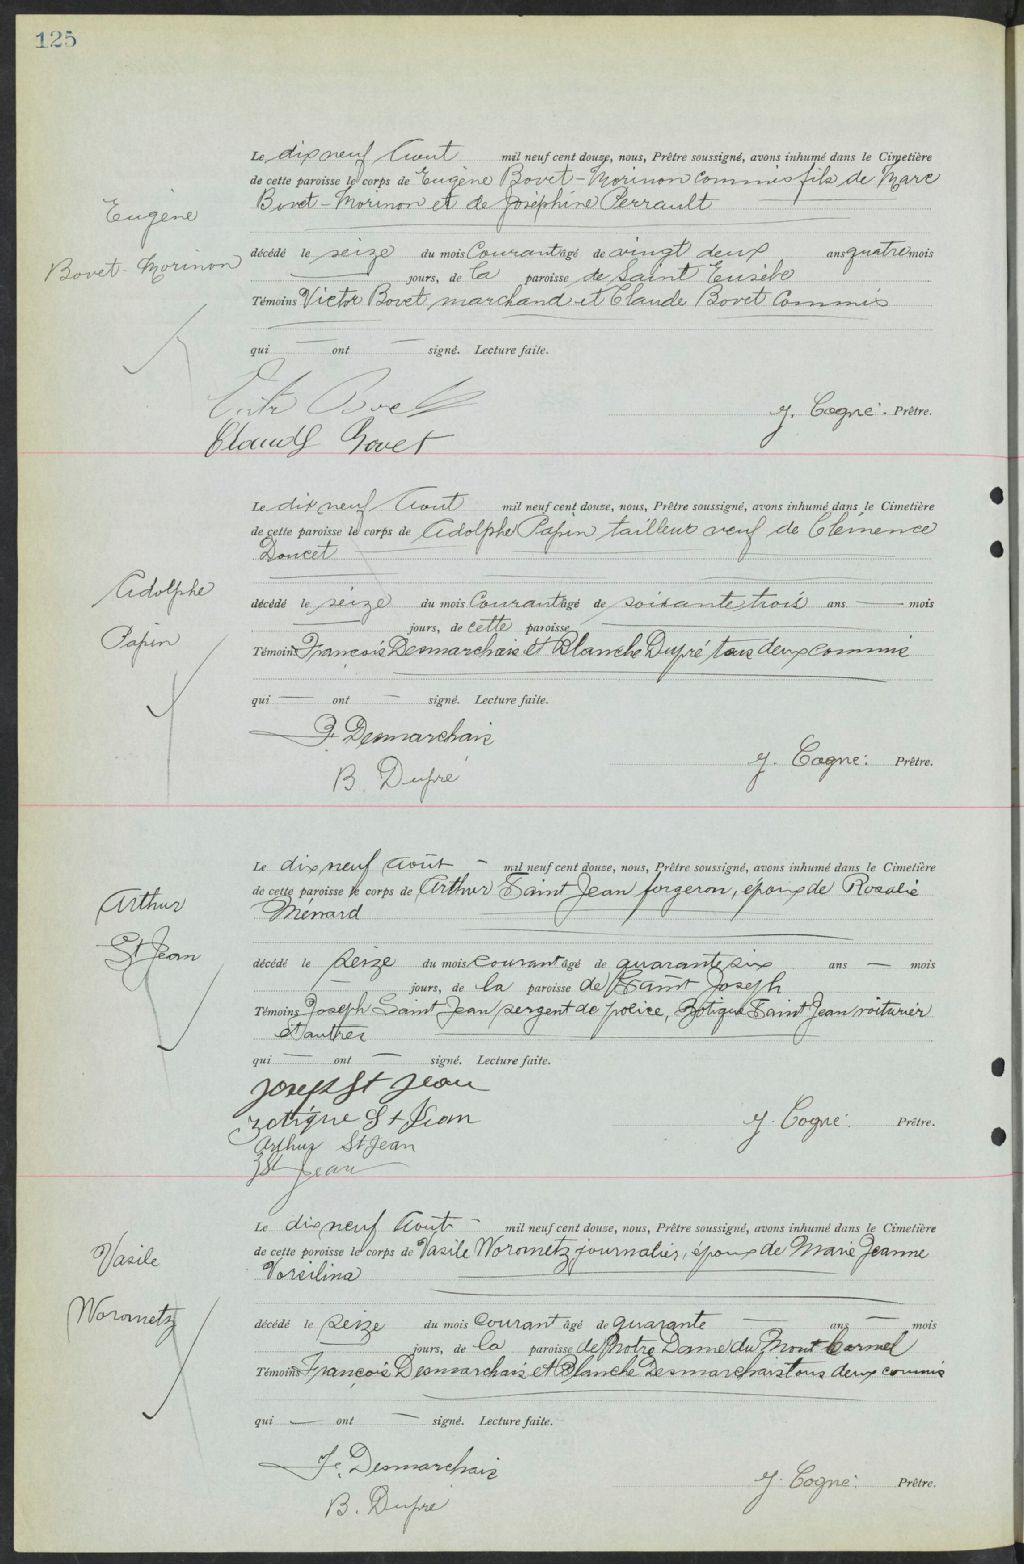 125
Le dix neuf Aout mil neuf cent douze, nous, Prêtre soussigné, avons inhumé dans le Cimetière
de cette paroisse le corps de Eugène Bovet-Morinon commis fils de Marc
Bovet-Morinon et de Joséphine Perrault
Eugène
Bovet-Morinon
décédé le seize du mois Courant âgé de vingt deux ans quatre mois
jours, de la paroisse de Saint Eusèbe
Témoins Victor Bovet marchand et Claude Bovet Commis
qui ont signé. Lecture faite.
Bovet
J. Cogne. Prêtre.
Claude Bovet
Le dix neuf Aout mil neuf cent douze, nous, Prêtre soussigné, avons inhumé dans le Cimetière
de cette paroisse le corps de Adolphe Papin tailleur veuf de Clémence
Doucet
Adolphe
Papin
décédé le seize du mois Courant âgé de soixante trois ans mois
jours, de cette paroisse
Témoins François Desmarchais et Blanche Dupré tous deux commis
qui ont signé. Lecture faite.
F. Desmarchais
J. Cogne: Prêtre.
B. Dupré
Le dix neuf Août mil neuf cent douze, nous, Prêtre soussigné, avons inhumé dans le Cimetière
de cette paroisse le corps de Arthur Saint Jean forgeron, époux de Rosalie
Ménard
Arthur
St Jean
décédé le seize du mois courant âgé de quarante six ans mois
jours, de la paroisse de Saint Joseph
Témoins Joseph Saint Jean sergent de police, Zotique Saint Jean voiturier
et autres
qui ont signé. Lecture faite.
Joseph St Jean
zotique St Jean
J. Cogne: Prêtre.
Arthur St Jean
St Jean
Le dix neuf Aout mil neuf cent douze, nous, Prêtre soussigné, avons inhumé dans le Cimetière
de cette paroisse le corps de Vasile Worometz journalier, époux de Marie Jeanne
Vorcilina
Vasile
Worometz
décédé le seize du mois courant âgé de quarante ans mois
jours, de la paroisse de Notre Dame du Mont Carmel
Témoins François Desmarchais et Blanche Desmarchais tous deux commis
qui ont signé. Lecture faite.
F. Desmarchais
J. Cogne: Prêtre.
B. Dupré